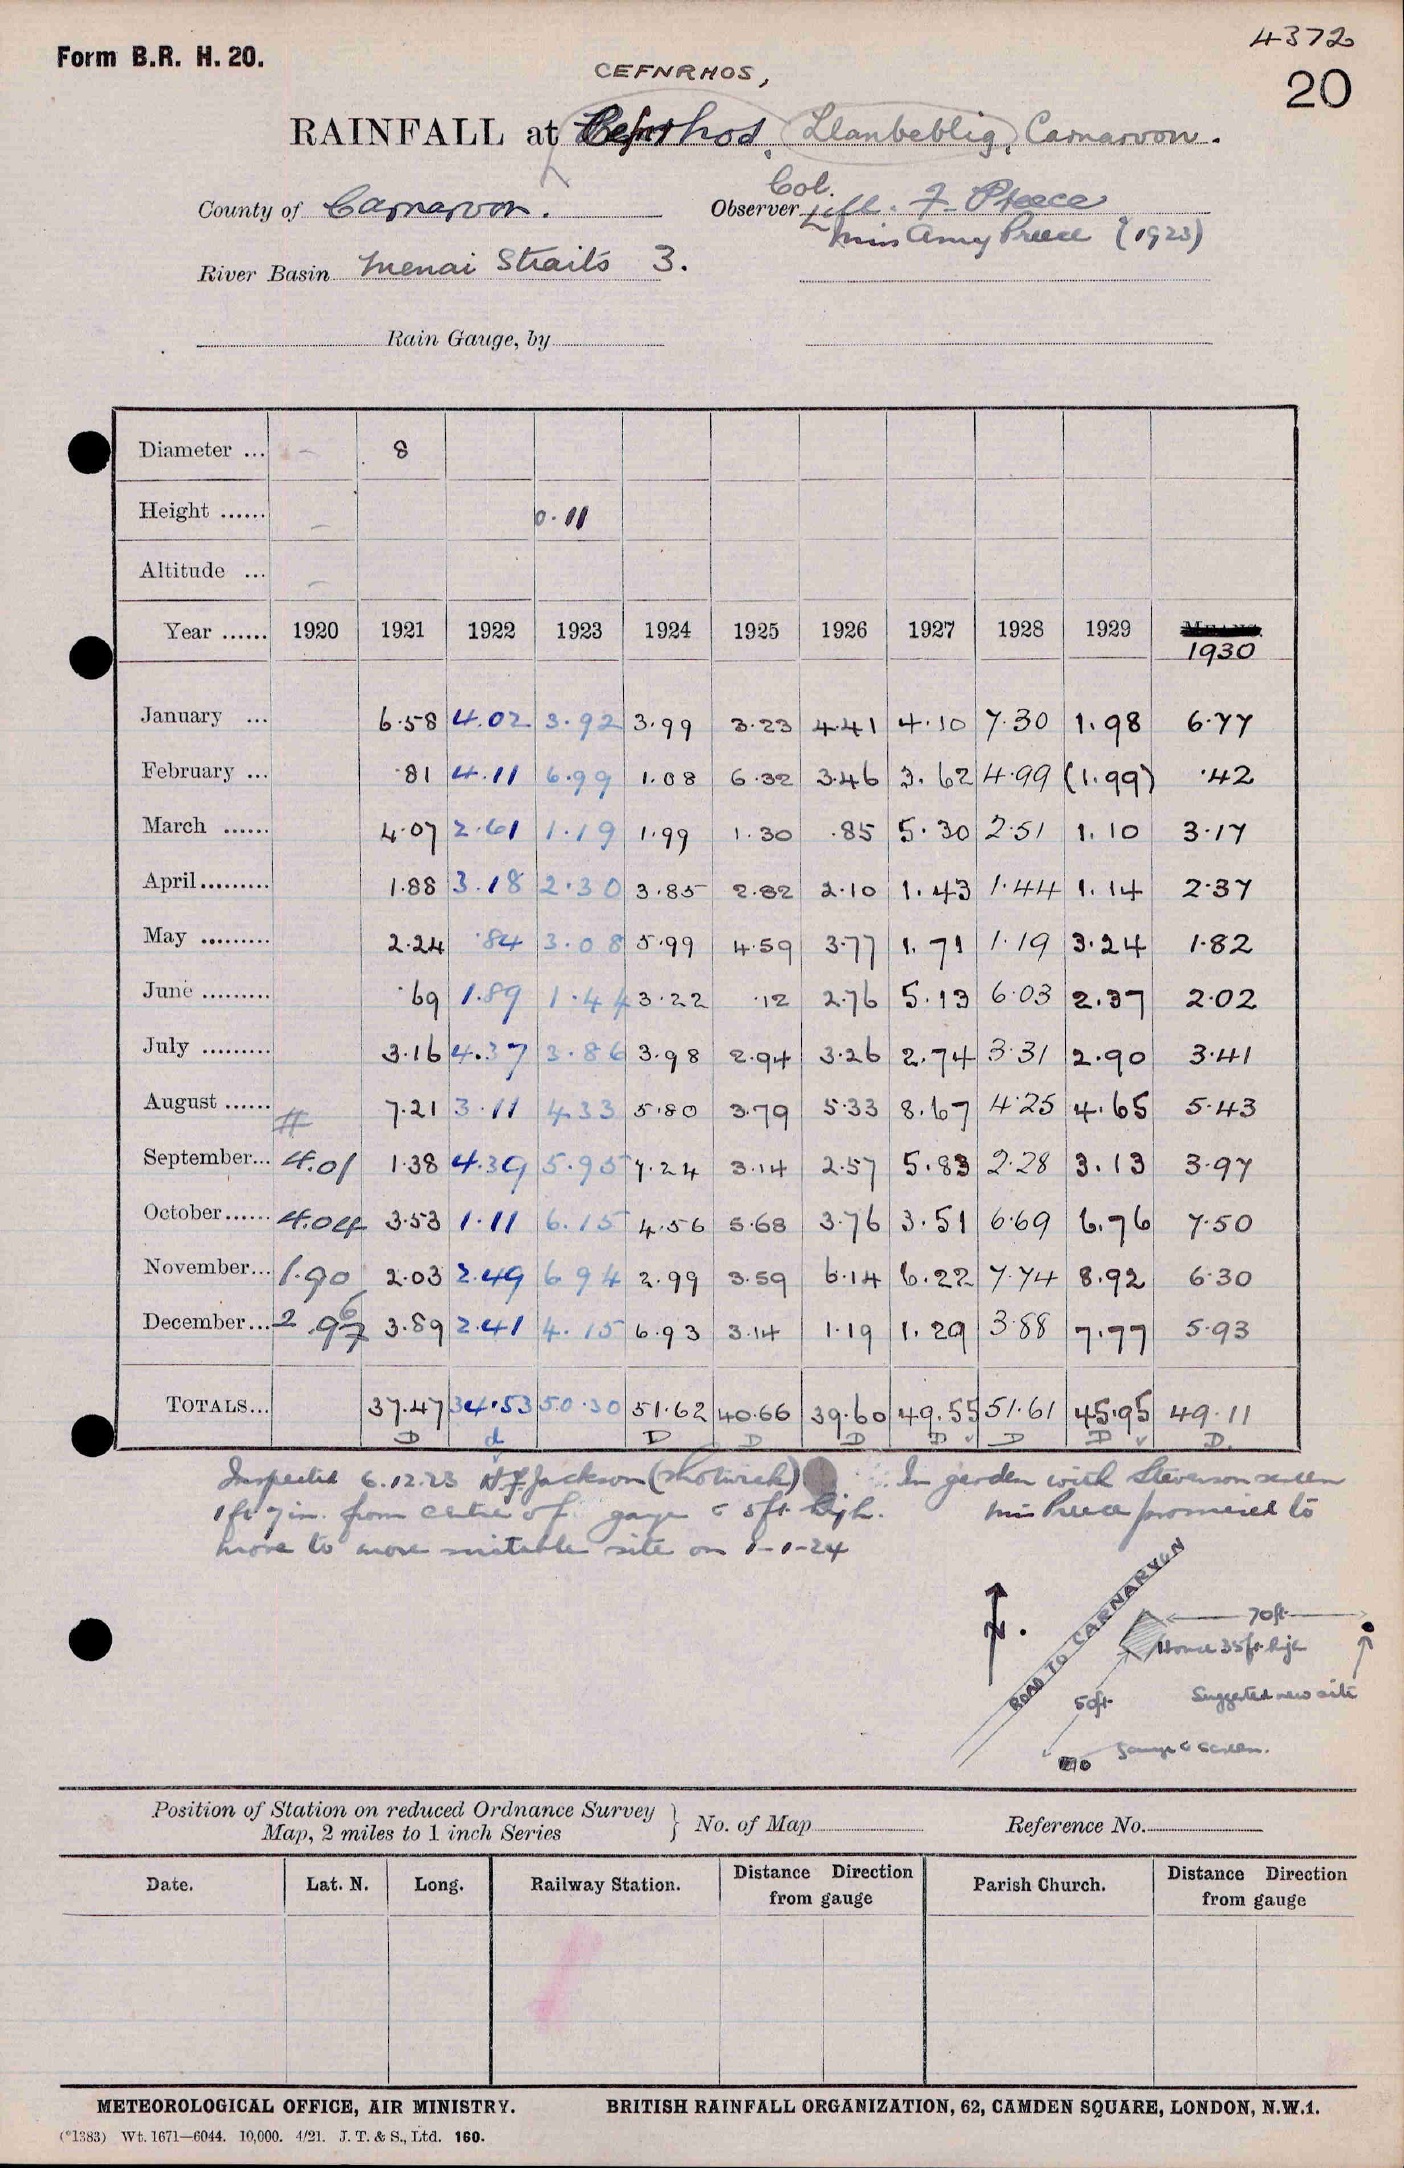 4372
Form B.R. H. 20.
20
CEFNRHOS,
RAINFALL at Cefnrhos, Llanbeblig, Carnarvon.
County of Carnarvon.
Col.
Observer F. Preece
Miss Amy Preece (1923)
River Basin Menai Straits 3.
Rain Gauge, by
Diameter ... – 8
Height ...... – 0.11
Altitude ... –
Year ...... 1920 1921 1922 1923 1924 1925 1926 1927 1928 1929 MEANS. 1930
January ... 6.58 4.02 3.92 3.99 3.23 4.41 4.10 7.30 1.98 6.77
February ... .81 4.11 6.99 1.08 6.32 3.46 3.62 4.99 (1.99) .42
March ...... 4.07 2.61 1.19 1.99 1.30 .85 5.30 2.51 1.10 3.17
April......... 1.88 3.18 2.30 3.85 2.82 2.10 1.43 1.44 1.14 2.37
May ......... 2.24 .84 3.08 5.99 4.59 3.77 1.71 1.19 3.24 1.82
June ......... .69 1.89 1.44 3.22 .12 2.76 5.13 6.03 2.37 2.02
July ......... 3.16 4.37 3.86 3.98 2.94 3.26 2.74 3.31 2.90 3.41
August ...... # 7.21 3.11 4.33 5.80 3.79 5.33 8.67 4.25 4.65 5.43
September... 4.01 1.38 4.39 5.95 7.24 3.14 2.57 5.83 2.28 3.13 3.97
October...... 4.04 3.53 1.11 6.15 4.56 5.68 3.76 3.51 6.69 6.76 7.50
November... 1.90 2.03 2.49 6.94 2.99 3.59 6.14 6.22 7.74 8.92 6.30
December... 2.96 3.89 2.41 4.15 6.93 3.14 1.19 1.29 3.88 7.77 5.93
TOTALS... 37.47 34.53 50.30 51.62 40.66 39.60 49.55 51.61 45.95 49.11
D d D D D D v D D v D.
Inspected 6.12.23 Jackson (Shotwick) In garden with Stevenson screen
1ft 7in. from centre of gauge & 5ft. high. Miss Preece promised to
move to more suitable site on 1-1-24
N.
ROAD TO CARNARVON
70ft.
House 35ft. high
50ft.
Suggested new site
Gauge & Screen.
Position of Station on reduced Ordnance Survey
Map, 2 miles to 1 inch Series } No. of Map Reference No.
Date. Lat. N. Long. Railway Station. Distance Direction from gauge Parish Church. Distance Direction from gauge
METEOROLOGICAL OFFICE, AIR MINISTRY. BRITISH RAINFALL ORGANIZATION, 62, CAMDEN SQUARE, LONDON, N.W.1.
(*1383) Wt. 1671—6044. 10,000. 4/21. J. T. & S., Ltd. 160.